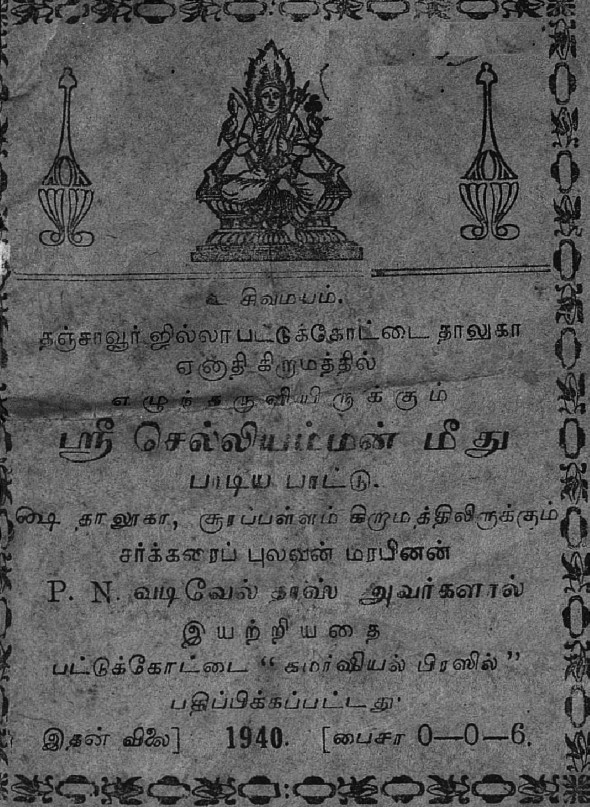 உ சிவமயம்.
தஞ்சாவூர் ஜில்லா பட்டுக்கோட்டை தாலுகா
ஏனாதி கிறுமத்தில்
எழுந்தருவியிருக்கும்
ஸ்ரீ செல்லியம்மன் மீது
பாடிய பாட்டு.
ஷை தாலூகா, சூரப்பள்ளம் கிறுமத்திலிருக்கும்
சர்க்கரைப் புலவன் மரபினன்
P. N. வடிவேல் தாஸ் அவர்களால்
இயற்றியதை
பட்டுக்கோட்டை “கமர்ஷியல் பிரஸில்”
பதிப்பிக்கப்பட்டது.
இதன் விலை] 1940. [பைசா 0—0—6.